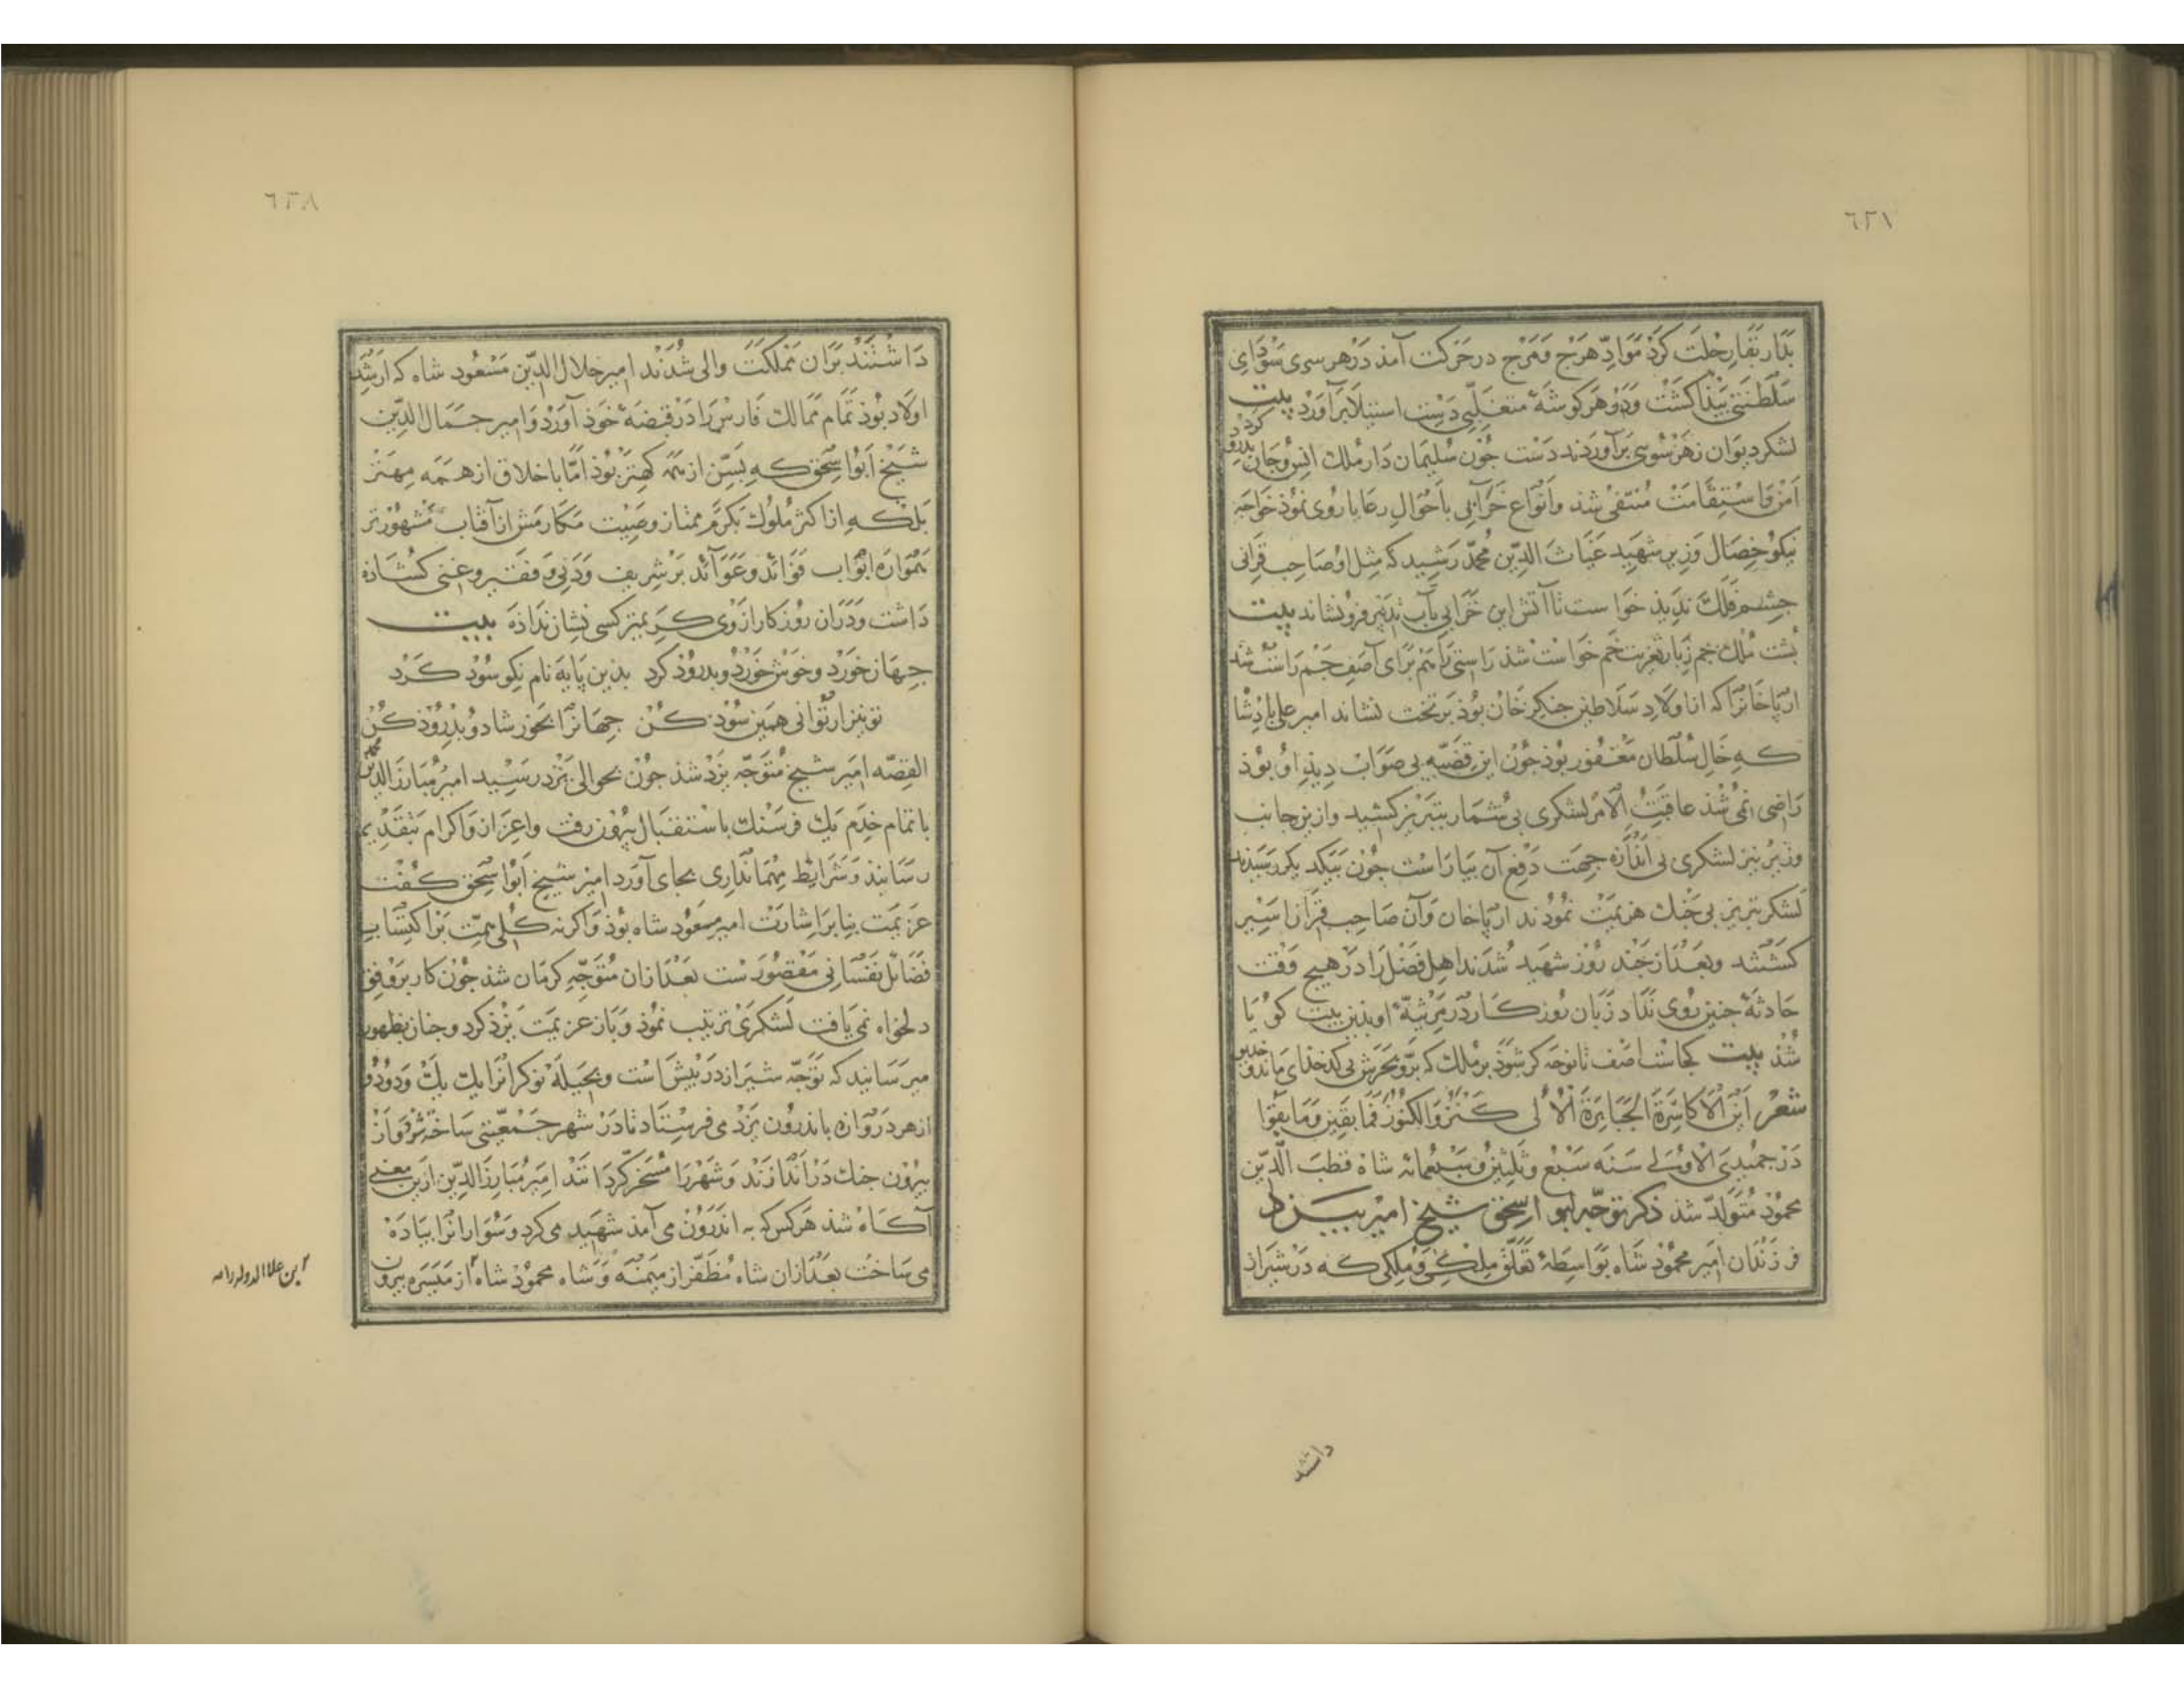 ٦٢١
بدار بقا رحلت کرد موادّ هرج و مرج در حرکت آمد در هر سری سودای
سلطنتی پیذا کشت و در هر کوشهٔ متغلّبی دست استیلا برآورد بیت
لشکر دیوان ز هر سوی برآوردند دست جون سلیمان دار ملک انس و جان بدرود کرد
امن و استقامت منتفی شد و انواع خرابی باحوال رعایا روی نموذ خواجه
نیکو خصال وزیر شهید غیاث الدّین محمّد رشید که مثل او صاحب قرانی
جشم فلک ندیذ خواست تا آتش این خرابی بآب تدبیر فرو نشاند بیت
بشت ملک جم زبار تعزیت خم خواست شد راستی را هم برای آصف جم راست شد
ارپاخانرا که از اولاد سلاطین جنکیز خان بوذ بر تخت نشاند امیر علی پادشا
که خال سلطان مغفور بوذ جون این قضیّه بی صواب دید او بوذ
راضی نمی شذ عاقبت الامر لشکری بی شمار بتبریز کشید و ازین جانب
وزیر نیز لشکری بی اندازه جهت دفع آن بیاراست جون بیکدیکر رسیدند
لشکر تبریز بی جنک هزیمت نمودند ارپاخان و آن صاحب قران اسیر
کشتند و بعد از جند روز شهید شدند اهل فضل را در هیچ وقت
حادثهٔ جنین روی نداد زبان روزکار در مرثیهٔ او بذین بیت کویا
شذ بیت کجاست اصف تا نوحه کر شوذ بر ملک که برّ و بحرش بی کدخدای ماند و خدیو
شعر این الاکاسرة الجبابرة الألی کنزوا الکنوز فما بقین و ما بقوا
در جمیدی الاولی سنه سبع و ثلثین و سبعمائه شاه قطب الدّین
محمود متولّد شد ذکر توجّه ابو اسحق شیخ امیر بیزد
فرزندان امیر محمود شاه بواسطهٔ تعلّق ملکی و ملکی که در شیراز
داشتند
٦٣٨
داشتند بران مملکت والی شدند امیر جلال الدّین مسعود شاه که ارشد
اولاد بوذ تمام ممالک فارس را در قبضهٔ خوذ آورد و امیر جمال الدّین
شیخ ابوا سحق که بسنّ از همه کهتر بوذ امّا باخلاق از همه مهتر
بلکه از اکثر ملوک بکرم ممتاز و صیت مکارمش از آفتاب مشهورتر
همواره ابواب فوائد و عوآئد بر شریف و دنی و فقیر و غنی کشاذه
داشت و دران روزکار ازوی کریمتر کسی نشان نداذه بیت
جهان خورد و خوش خورد و بدروذ کرد بذین پایه نام نکو سوذ کرد
تو نیز ار توانی همین سوذ کن جهانرا بخور شاد و بدروذ کن
القصّه امیر شیخ متوجّه یزد شذ جون بحوالی یزد رسید امیر مبارز الدین محمد
با تمام خدم یک فرسنک باستقبال بیرون رفت و اعزاز و اکرام بتقدیم
رسانیذ و شرایط مهمانداری بجای آورد امیر شیخ ابوا سحق کفت
عزیمت بنا بر اشارت امیر مسعود شاه بوذ و اکرنه کلی همّت بر اکتساب
فضائل نفسانی مقصورست بعد ازان متوجّه کرمان شذ جون کار بر وفق
دلخواه نمی یافت لشکری ترتیب نموذ و باز عزیمت یزد کرد و جنان بظهور
میرسانید که توجّه شیراز در پیش است و بحیله نوکرانرا یک یک و دو دو
از هر دروازه باندرون یزد می فرستاد تا در شهر جمعیّتی ساخته شود و از
بیرون جنک در اندازند و شهر را مسخر کردانند امیر مبارز الدّین ازین معنی
آکاه شذ هر کس که به اندرون می آمذ شهید می کرد و سوارانرا بیاده
می ساخت بعد ازان شاه مظفّر از میمنه و شاه محمود شاه از میسره بیرون
ابن علاالدوله